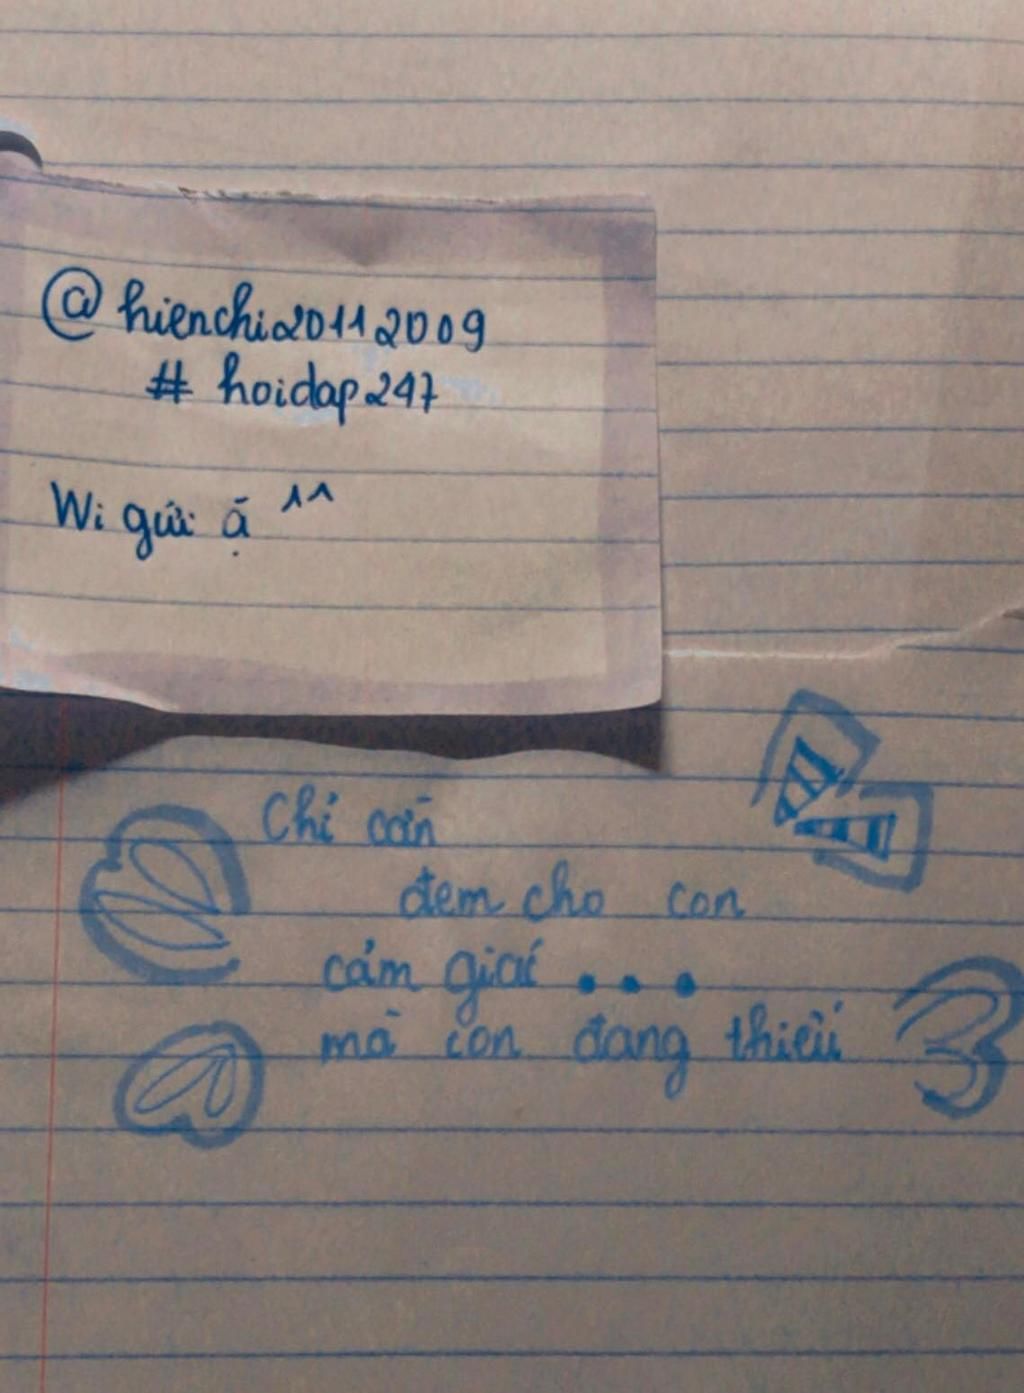 @hienchi20112009
# hoidap247
Wi gửi ạ ^^
Chỉ cần
đem cho con
cảm giác ...
mà con đang thiếu